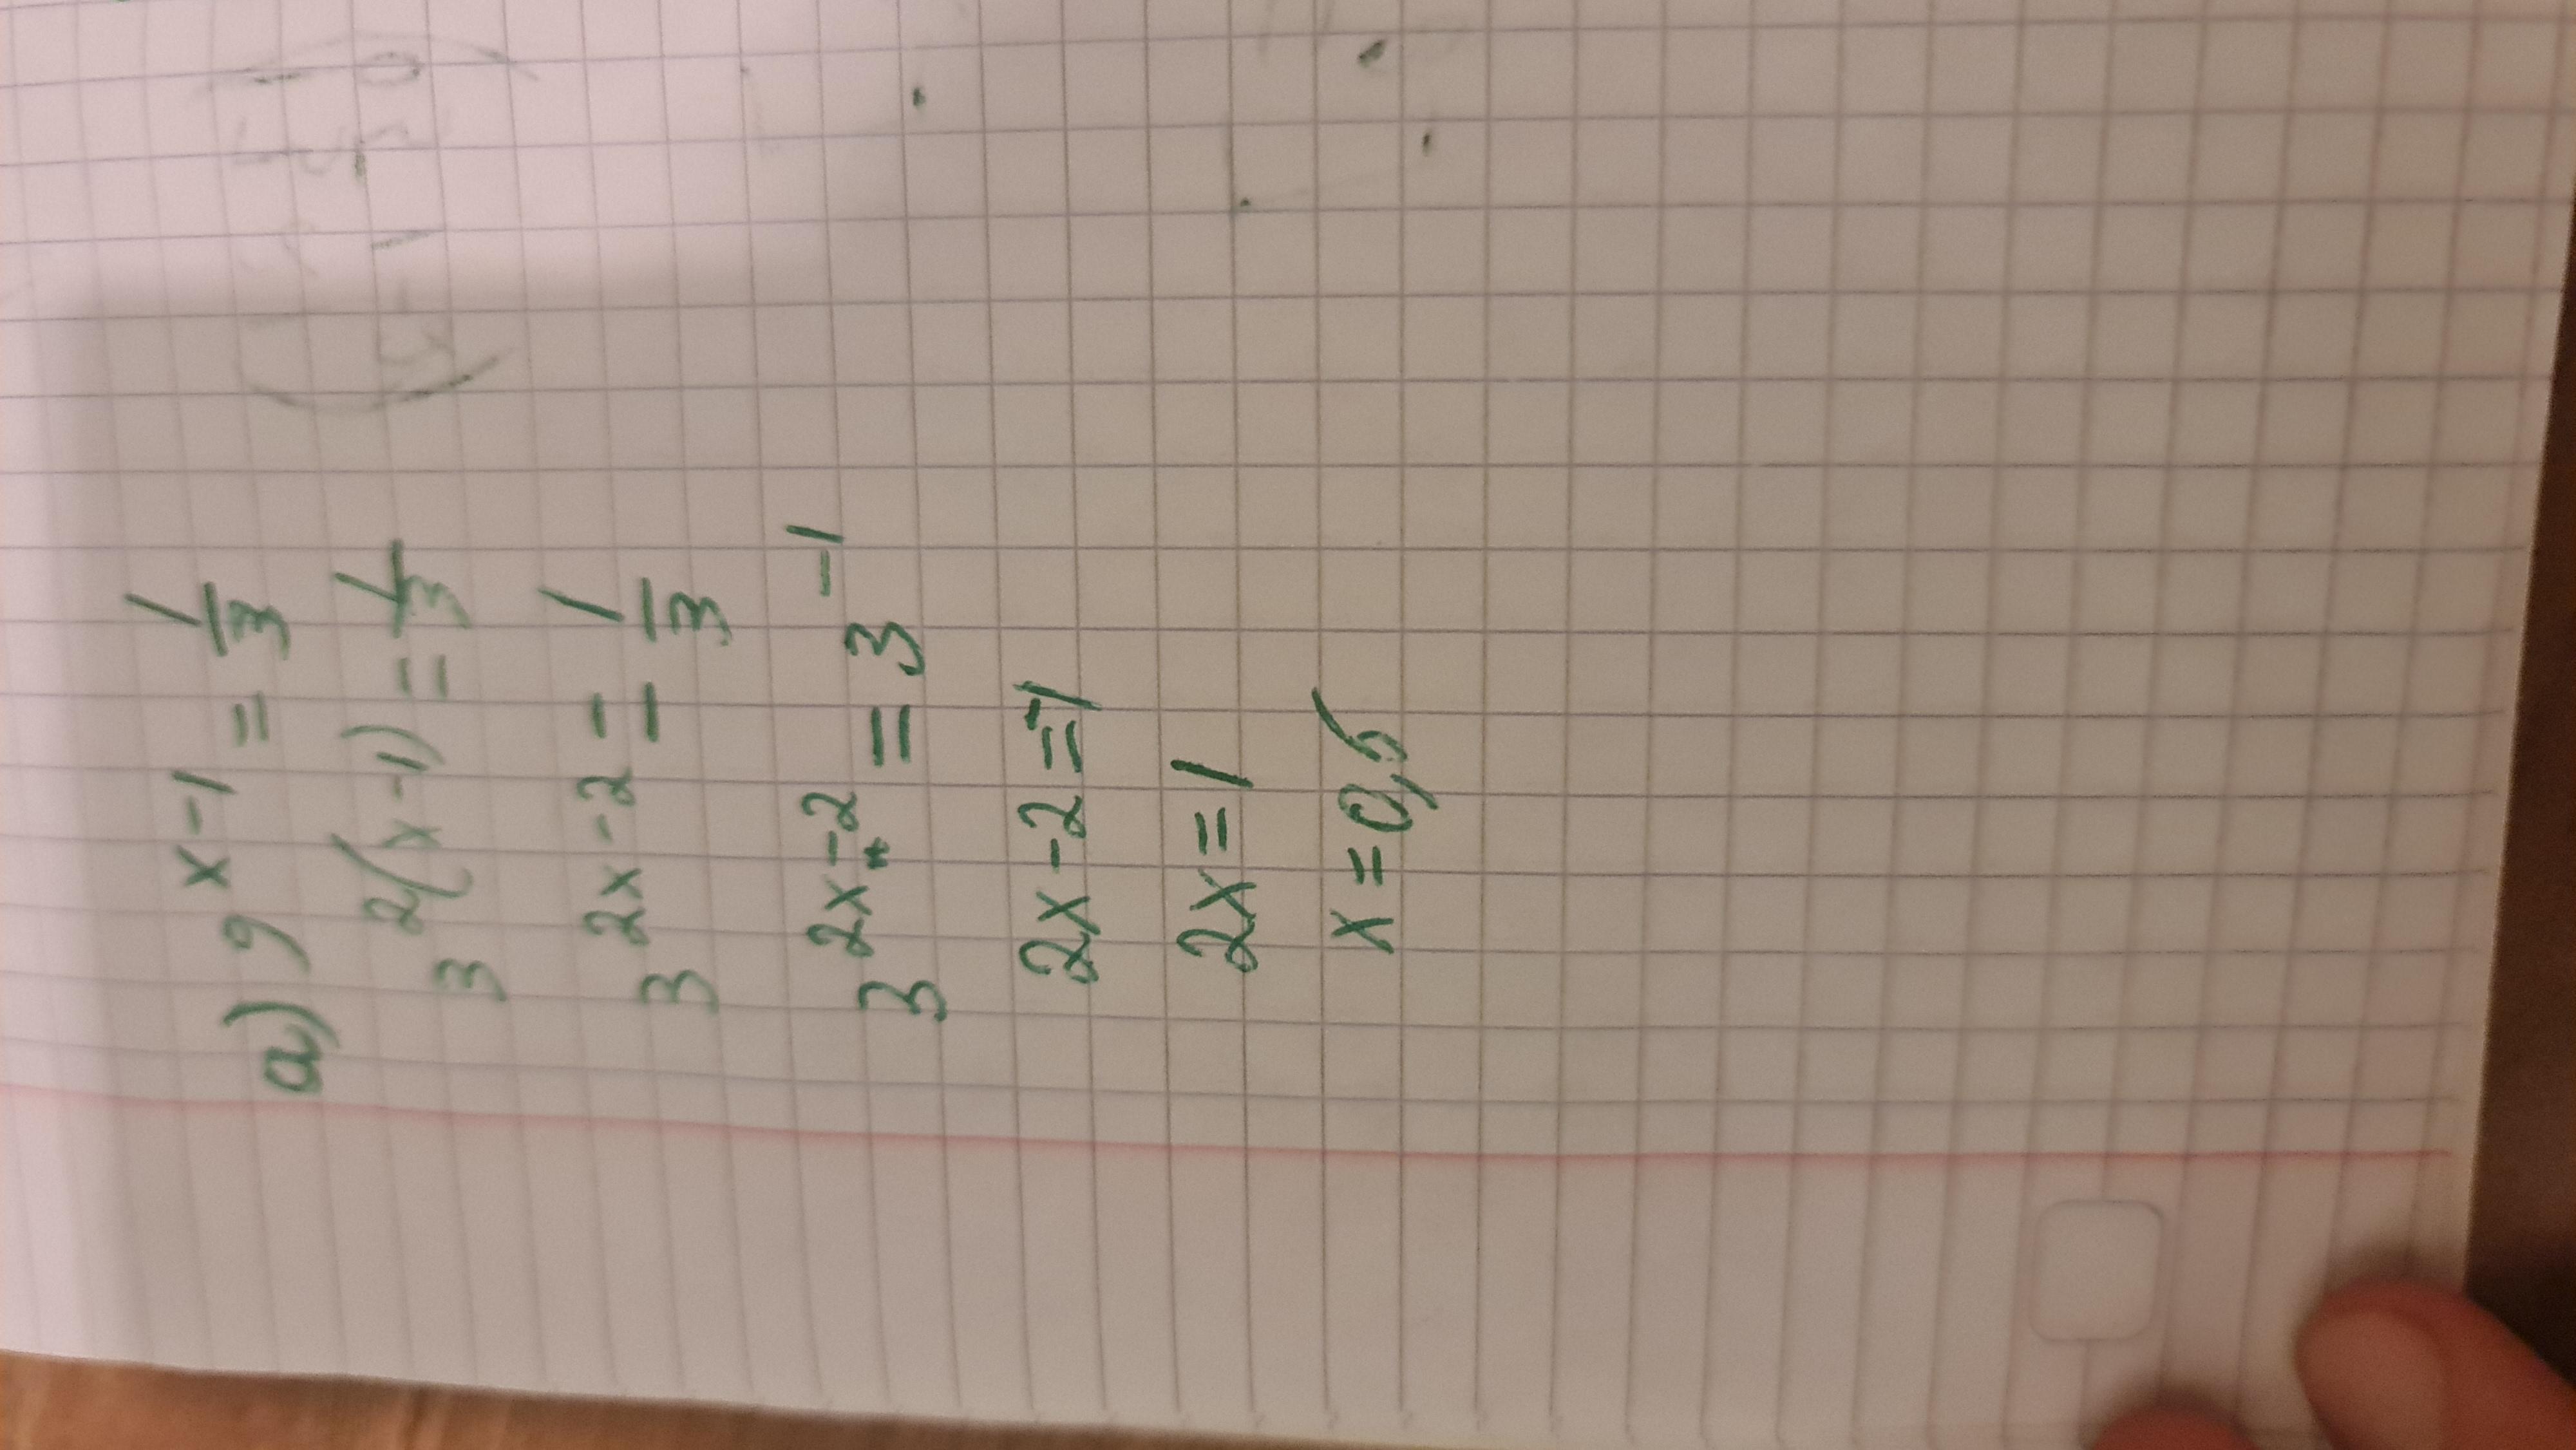 a) 9^{x-1} = \frac{1}{3}
3^{2(x-1)} = \frac{1}{3}
3^{2x-2} = \frac{1}{3}
3^{2x-2} = 3^{-1}
2x-2=-1
2x=1
x=0,5